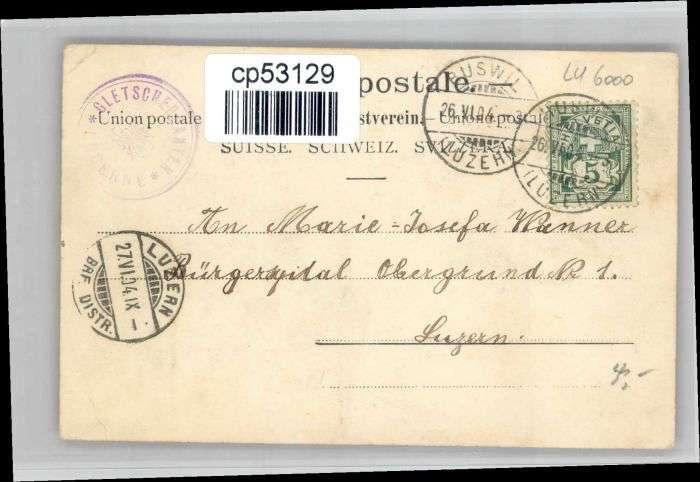 cp53129
postale.
LU 6000
Union postale stverein. – Unione postale
SUISSE. SCHWEIZ. SVIZZERA.
GLETSCHERGARTEN
RUSWIL
26.VI.04.
(LUZERN)
HELVETIA
5
26.VI.04
(LUZERN)
An Marie-Josefa Wanner
Bürgerspital Obergrund № 1.
Luzern.
LUZERN
27.VI.04.IX–
BRF. DISTR.